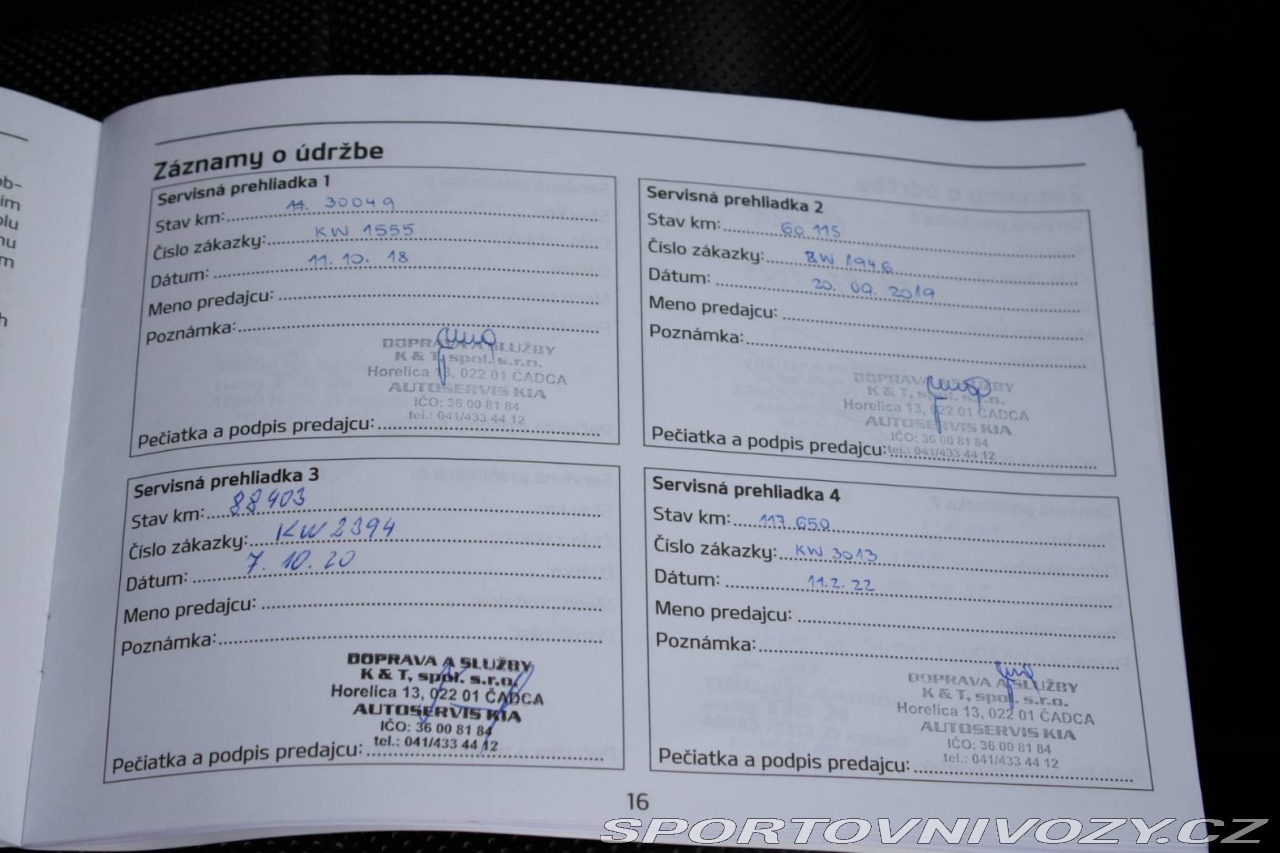 Záznamy o údržbe
Servisná prehliadka 1
Stav km: 11. 30049
Číslo zákazky: KW 1555
Dátum: 11. 10. 18
Meno predajcu:
Poznámka:
DOPRAVA A SLUŽBY
K & T, spol. s.r.o.
Horelica 13, 022 01 ČADCA
AUTOSERVIS KIA
IČO: 36 00 81 84
tel.: 041/433 44 12
Pečiatka a podpis predajcu:
Servisná prehliadka 2
Stav km: 60 115
Číslo zákazky: BW 1946
Dátum: 20. 09. 2019
Meno predajcu:
Poznámka:
DOPRAVA A SLUŽBY
K & T, spol. s.r.o.
Horelica 13, 022 01 ČADCA
AUTOSERVIS KIA
IČO: 36 00 81 84
tel.: 041/433 44 12
Pečiatka a podpis predajcu:
Servisná prehliadka 3
Stav km: 88403
Číslo zákazky: KW 2394
Dátum: 7. 10. 20
Meno predajcu:
Poznámka:
DOPRAVA A SLUŽBY
K & T, spol. s.r.o.
Horelica 13, 022 01 ČADCA
AUTOSERVIS KIA
IČO: 36 00 81 84
tel.: 041/433 44 12
Pečiatka a podpis predajcu:
Servisná prehliadka 4
Stav km: 117 650
Číslo zákazky: KW 3013
Dátum: 11.2. 22
Meno predajcu:
Poznámka:
DOPRAVA A SLUŽBY
K & T, spol. s.r.o.
Horelica 13, 022 01 ČADCA
AUTOSERVIS KIA
IČO: 36 00 81 84
tel.: 041/433 44 12
Pečiatka a podpis predajcu:
16
SPORTOVNIVOZY.CZ